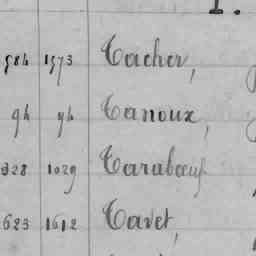 1.
584 1573 Cacher,
94 94 Canoux,
328 1029 Carabœuf
623 1612 Cavet,